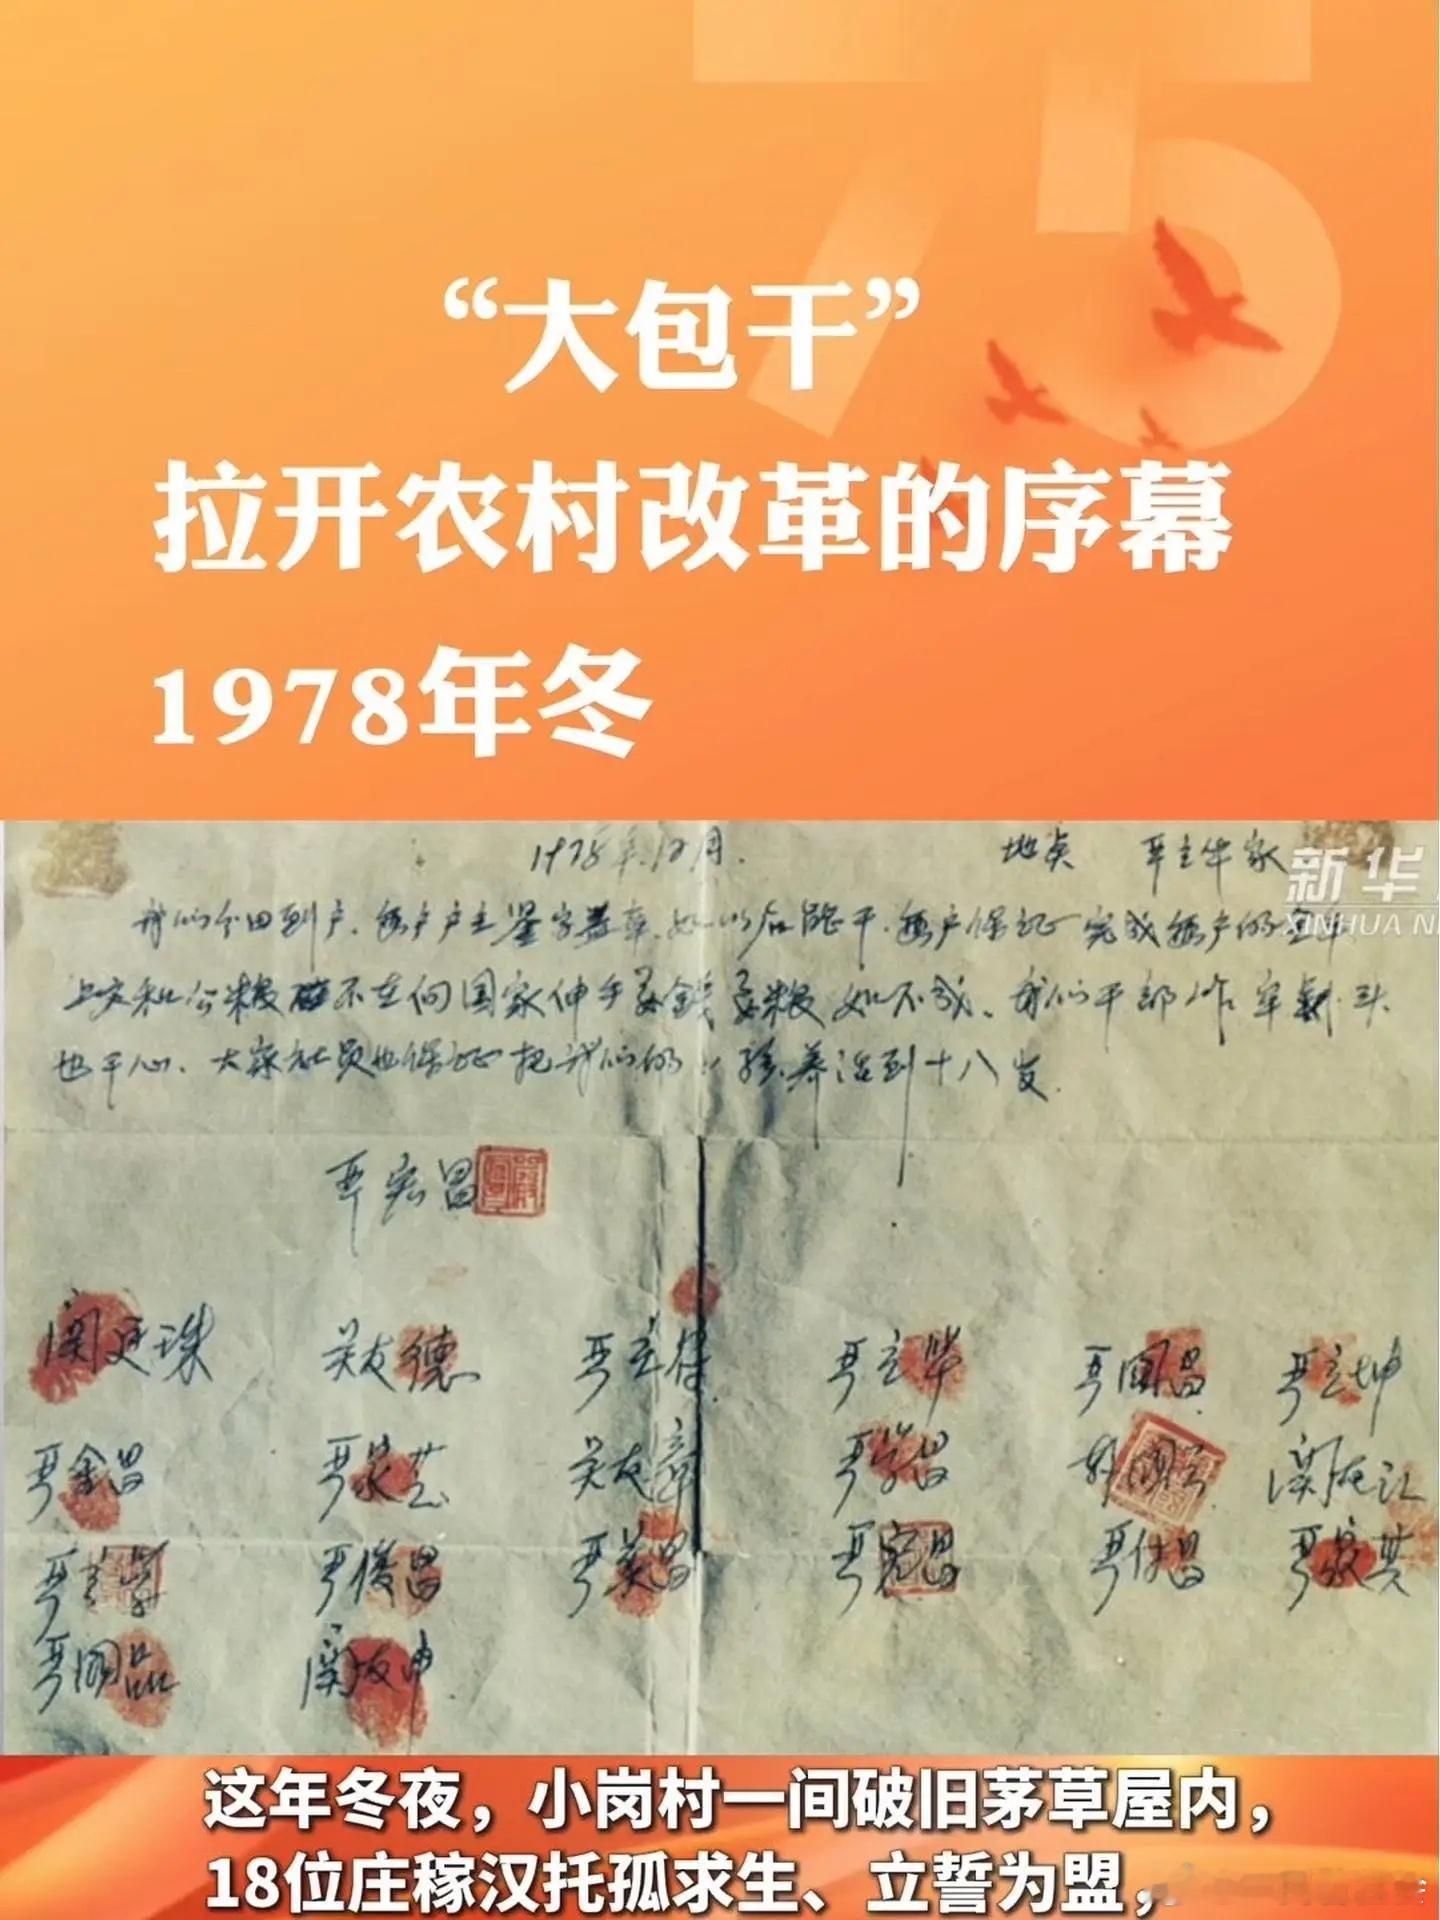 75
“大包干”
拉开农村改革的序幕
1978年冬
1978年12月. 地点 严立华家
新华
XINHUA NE
我们分田到户,每户户主签字盖章,如以后能干,每户保证完成每户的全年
上交和公粮不在向国家伸手要钱要粮如不成,我们干部作牢杀头
也干心,大家社员也保证把我们的小孩养活到十八岁.
严宏昌
关廷珠 关友德 严立符 严立华 严国昌 严立坤
严金昌 严家芝 关友章 严学昌 韩国云 关友江
严立学 严俊昌 严美昌 严宏昌 严付昌 严家其
严国品 关友申
这年冬夜，小岗村一间破旧茅草屋内，
18位庄稼汉托孤求生、立誓为盟，